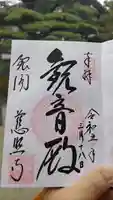 奉拝
令和二年
三月十八日
観音殿
銀閣
慈照寺